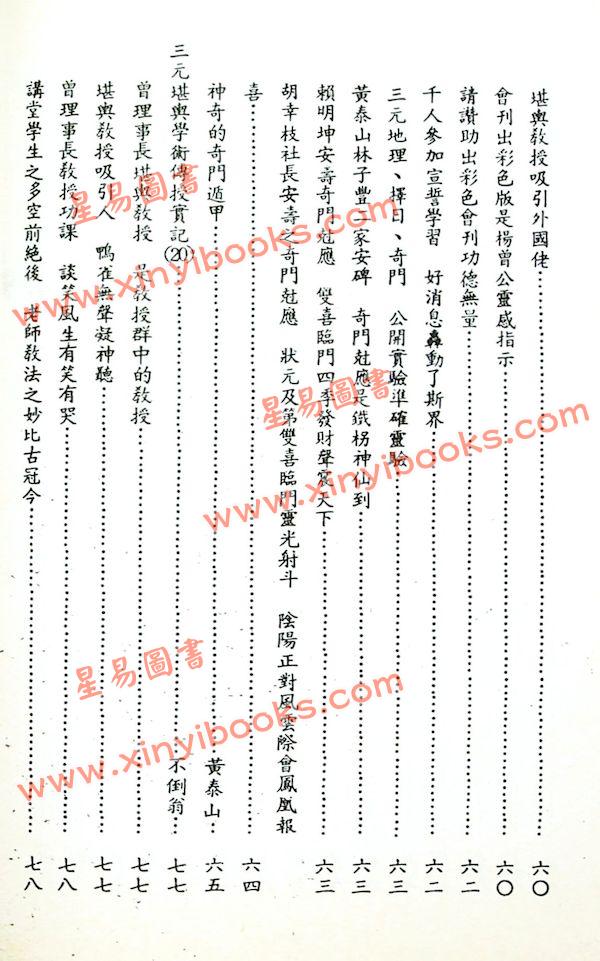 堪輿教授吸引外國佬……六〇
會刊出彩色版是楊曾公靈感指示……六〇
請讚助出彩色會刊功德無量……六二
千人參加宣誓學習　好消息轟動了斯界……六二
三元地理、擇日、奇門　公開實驗準確靈驗……六三
黃泰山林子豐二家安碑　奇門尅應是鐵拐神仙到……六三
賴明坤安壽奇門尅應　雙喜臨門四季發財聲震天下……六三
胡幸枝社長安壽之奇門尅應　狀元及第雙喜臨門靈光射斗　陰陽正對風雲際會鳳凰報
喜……六四
神奇的奇門遁甲……黃泰山…六五
三元堪輿學術傳授實記(20)……不倒翁…七七
曾理事長堪輿教授　是教授群中的教授……七七
堪輿教授吸引人　鴨雀無聲凝神聽……七七
曾理事長教授功課　談笑風生有笑有哭……七八
講堂學生之多空前絕後　老師教法之妙比古冠今……七八
星易圖書
www.xinyibooks.com
星易圖書
www.xinyibooks.com
星易圖書
www.xinyibooks.com